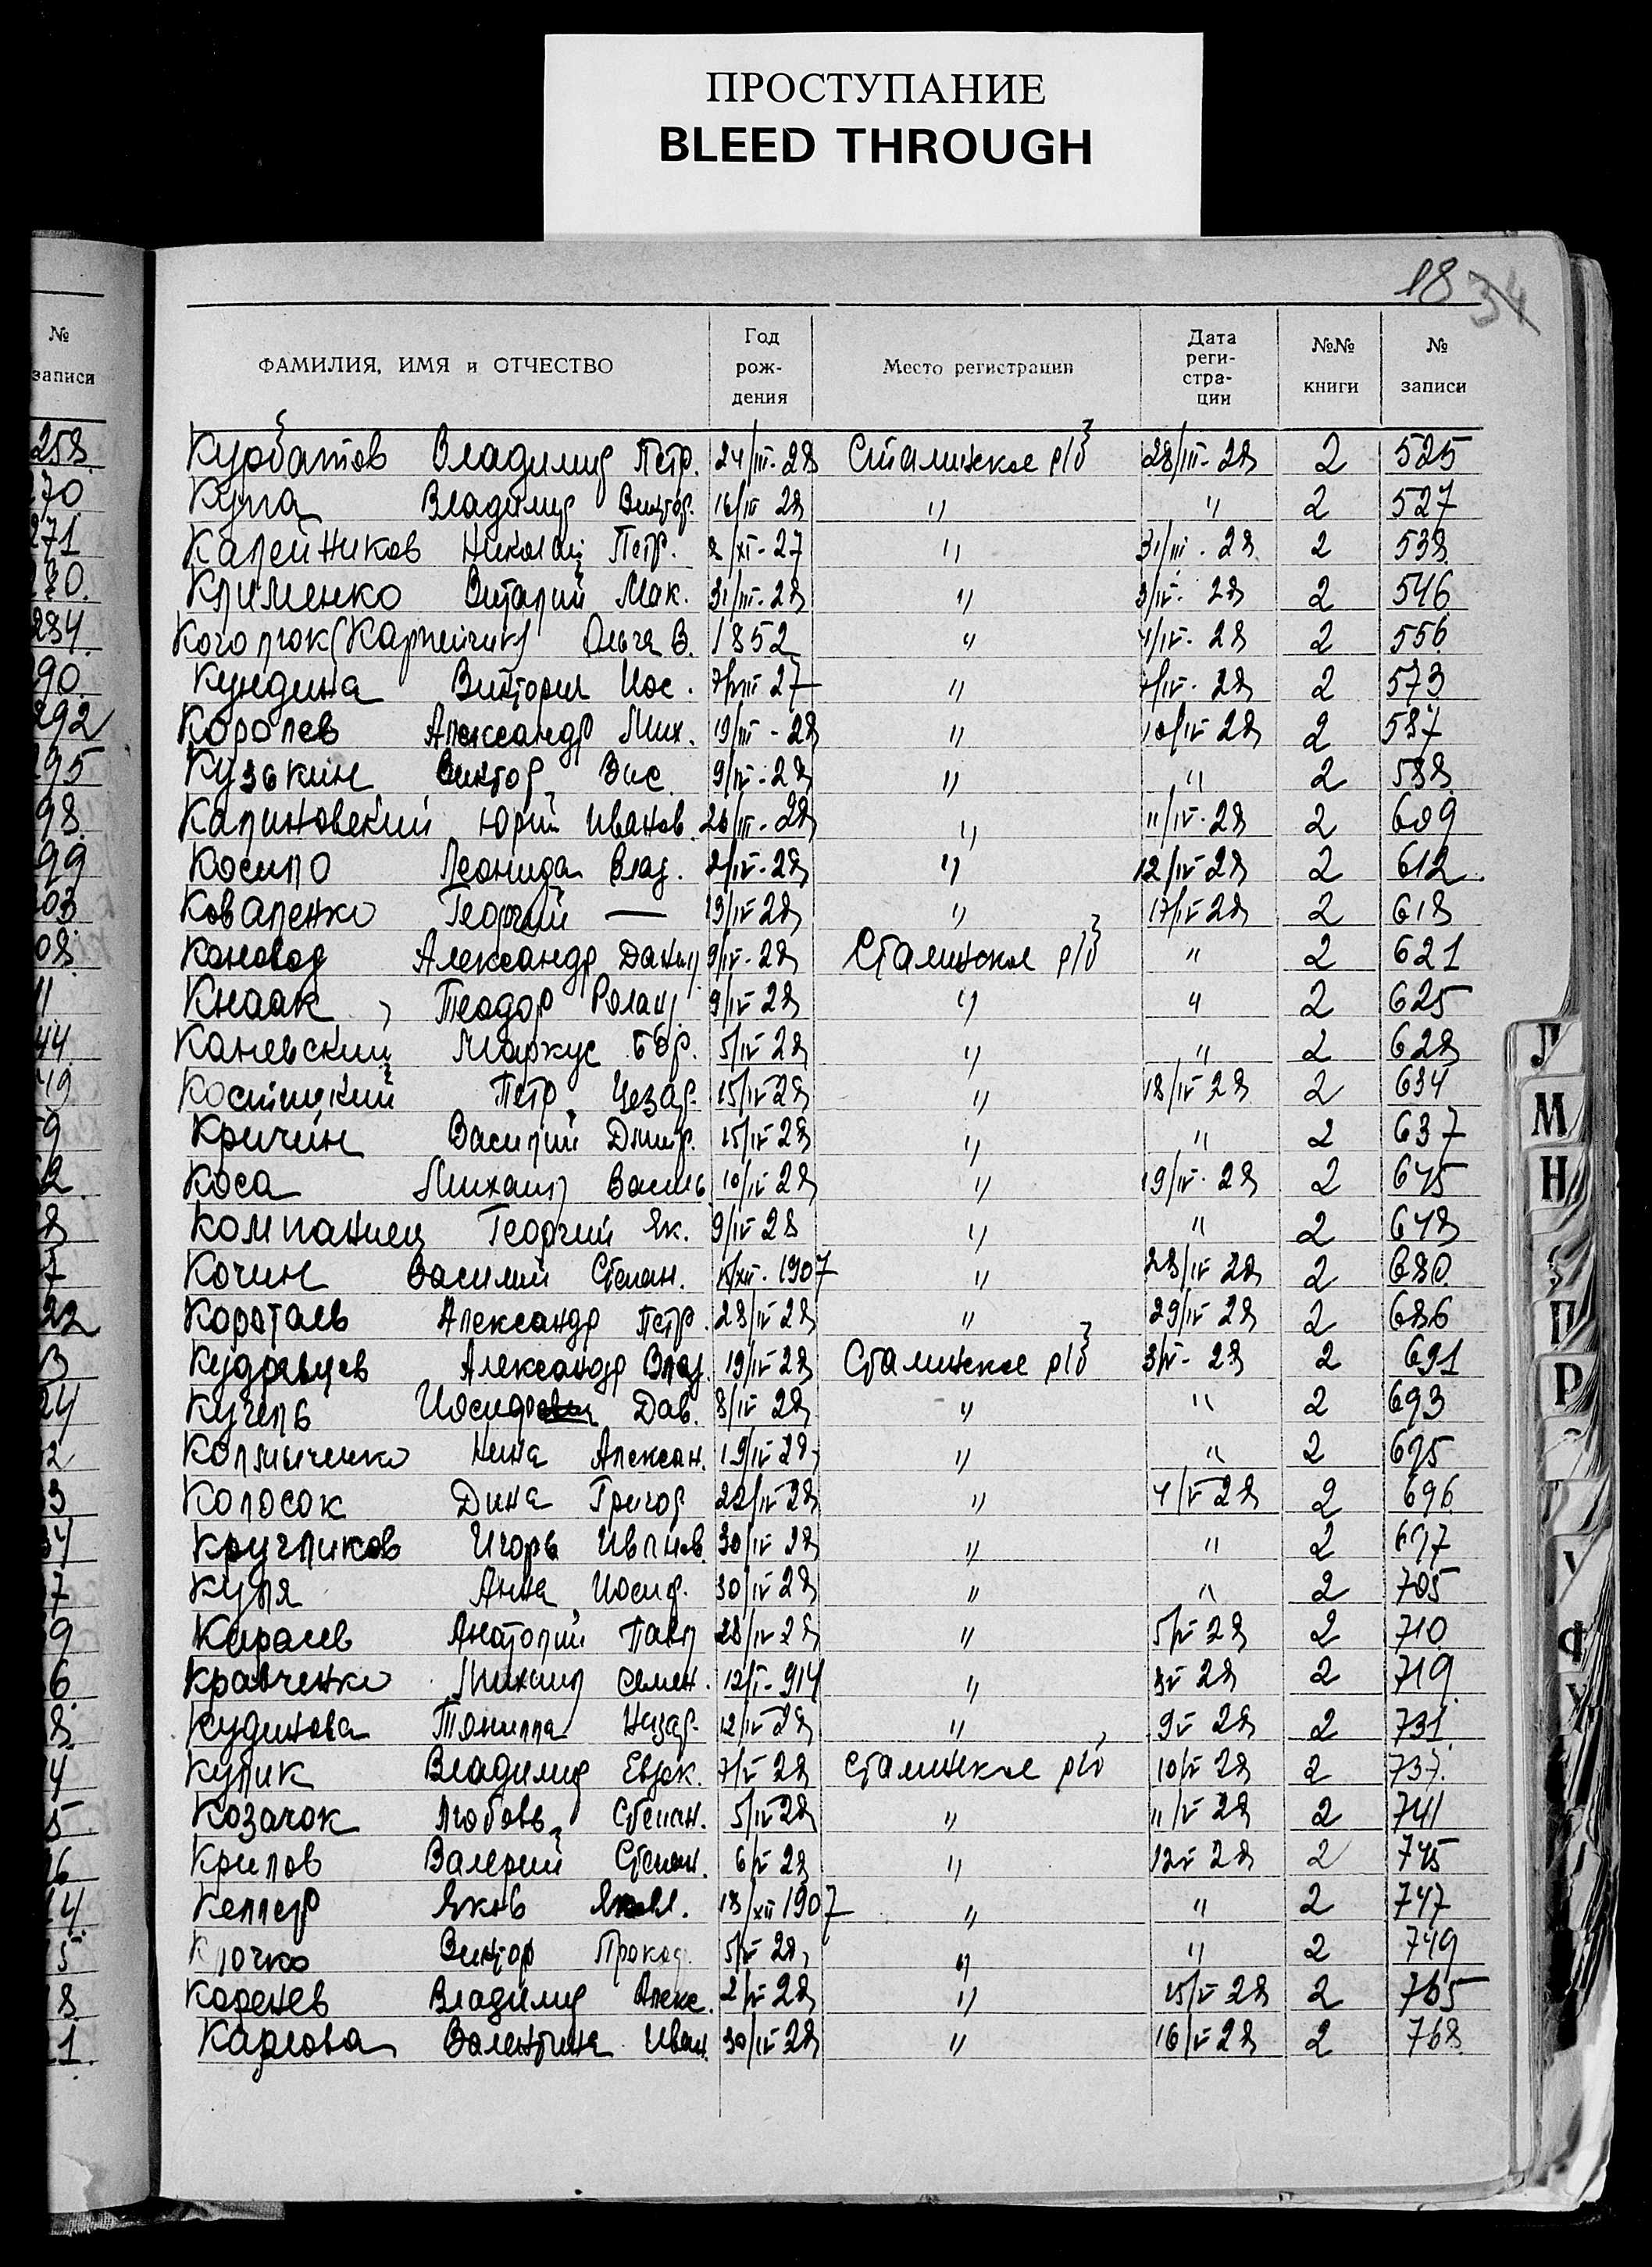 ПРОСТУПАНИЕ
BLEED THROUGH
18 34
№ записи
ФАМИЛИЯ, ИМЯ и ОТЧЕСТВО Год рождения Место регистрации Дата регистрации №№ книги № записи
Курбатов Владимир Петр. 24/III-28 Сталинское р/б 28/III-28 2 525
Купа Владимир Виктор. 16/III 28 " " 2 527
Калейников Николай Петр. 2/XI-27 " 31/III-28 2 538
Клименко Виталий Мак. 31/III-28 " 3/IV-28 2 546
Коголюк (Карпейчик) Ольга В. 1852 " 4/IV-28 2 556
Кундина Виктория Иос. 7/VIII 27 " 7/IV-28 2 573
Королев Александр Мих. 19/III-28 " 10/IV 28 2 587
Кузькин Виктор Вас. 9/III-28 " " 2 588
Калиновский Юрий Иванов. 26/III-28 " 11/IV-28 2 609
Косило Леонида Влад. 2/IV-28 " 12/IV 28 2 612
Коваленко Георгий — 13/IV 28 " 17/IV 28 2 618
Коновод Александр Данил 9/IV-28 Сталинское р/б " 2 621
Кнаак Теодор Ролан. 9/IV 28 " " 2 625
Каневский Маркус Бор. 5/IV 28 " " 2 628
Костицкий Петр Цезар. 15/IV 28 " 18/IV 28 2 634
Кричин Василий Дмитр. 15/IV 28 " " 2 637
Коса Михаил Василь 10/IV 28 " 19/IV-28 2 645
Компаниец Георгий Як. 9/IV 28 " " 2 648
Кочин Василий Степан. /XII-1907 " 28/IV 28 2 680
Короталь Александр Петр. 28/IV 28 " 29/IV 28 2 686
Кудрявцев Александр Влад. 19/IV 28 Сталинское р/б 3/V-28 2 691
Кугель Иосиф Дав. 8/IV 28 " " 2 693
Колмыченко Нина Алексан. 19/IV 28 " " 2 695
Колосок Дина Григор 22/IV 28 " 4/V 28 2 696
Кругликов Игорь Иванов. 30/IV 28 " " 2 697
Куля Анна Иосиф. 30/IV 28 " " 2 705
Кираев Анатолий Павл 28/IV 28 " 5/V 28 2 710
Кравченко Михаил Семен. 12/I-914 " 8V 28 2 719
Кудинова Томилла Назар. 12/IV 28 " 9V 28 2 731
Кулик Владимир Евдок. 7/V 28 Сталинское р/б 10/V 28 2 737
Козачок Любовь Степан. 5/IV 28 " 11/V 28 2 741
Крилов Валерий Степан. 6/V 28 " 12V 28 2 745
Келлер Яков Яковл. 13/XII 1907 " " 2 747
Клочко Виктор Прокоф. 5/V 28 " " 2 749
Коренев Владимир Алекс. 2/V 28 " 15/V 28 2 765
Карлова Валентина Иван. 30/IV 28 " 16/V 28 2 768
Л
М
Н
П
Р